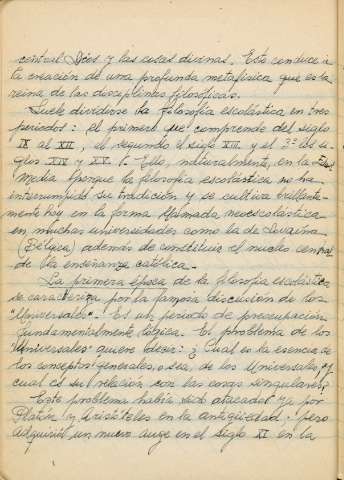 central Dios y las cosas divinas. Esto conduce a
la creación de una profunda metafísica que es la
reina de las disciplinas filosóficas.
Suele dividirse la filosofía escolástica en tres
períodos: el primero que comprende del siglo
IX al XII, el segundo el siglo XIII y el 3º los si-
glos XIV y XV. Ello, naturalmente, en la Edad
Media porque la filosofía escolástica no ha
interrumpido su tradición y se cultiva brillante-
mente hoy en la forma llamada neoescolástica
en muchas universidades como la de Lovaina
(Bélgica) además de constituir el nucleo central
de la enseñanza católica.-
La primera época de la filosofía escolástica
se caracteriza por la famosa discusión de los
"Universales". Es un período de preocupación
fundamentalmente lógica. El problema de los
"Universales" quiere decir: ¿Cual es la esencia de
los conceptos generales, o sea, de los Universales, y
cual es su relación con las cosas singulares?
Este problema había sido atacado ya por
Platón y Aristóteles en la antigüedad, pero
adquirió un nuevo auge en el siglo XI en la